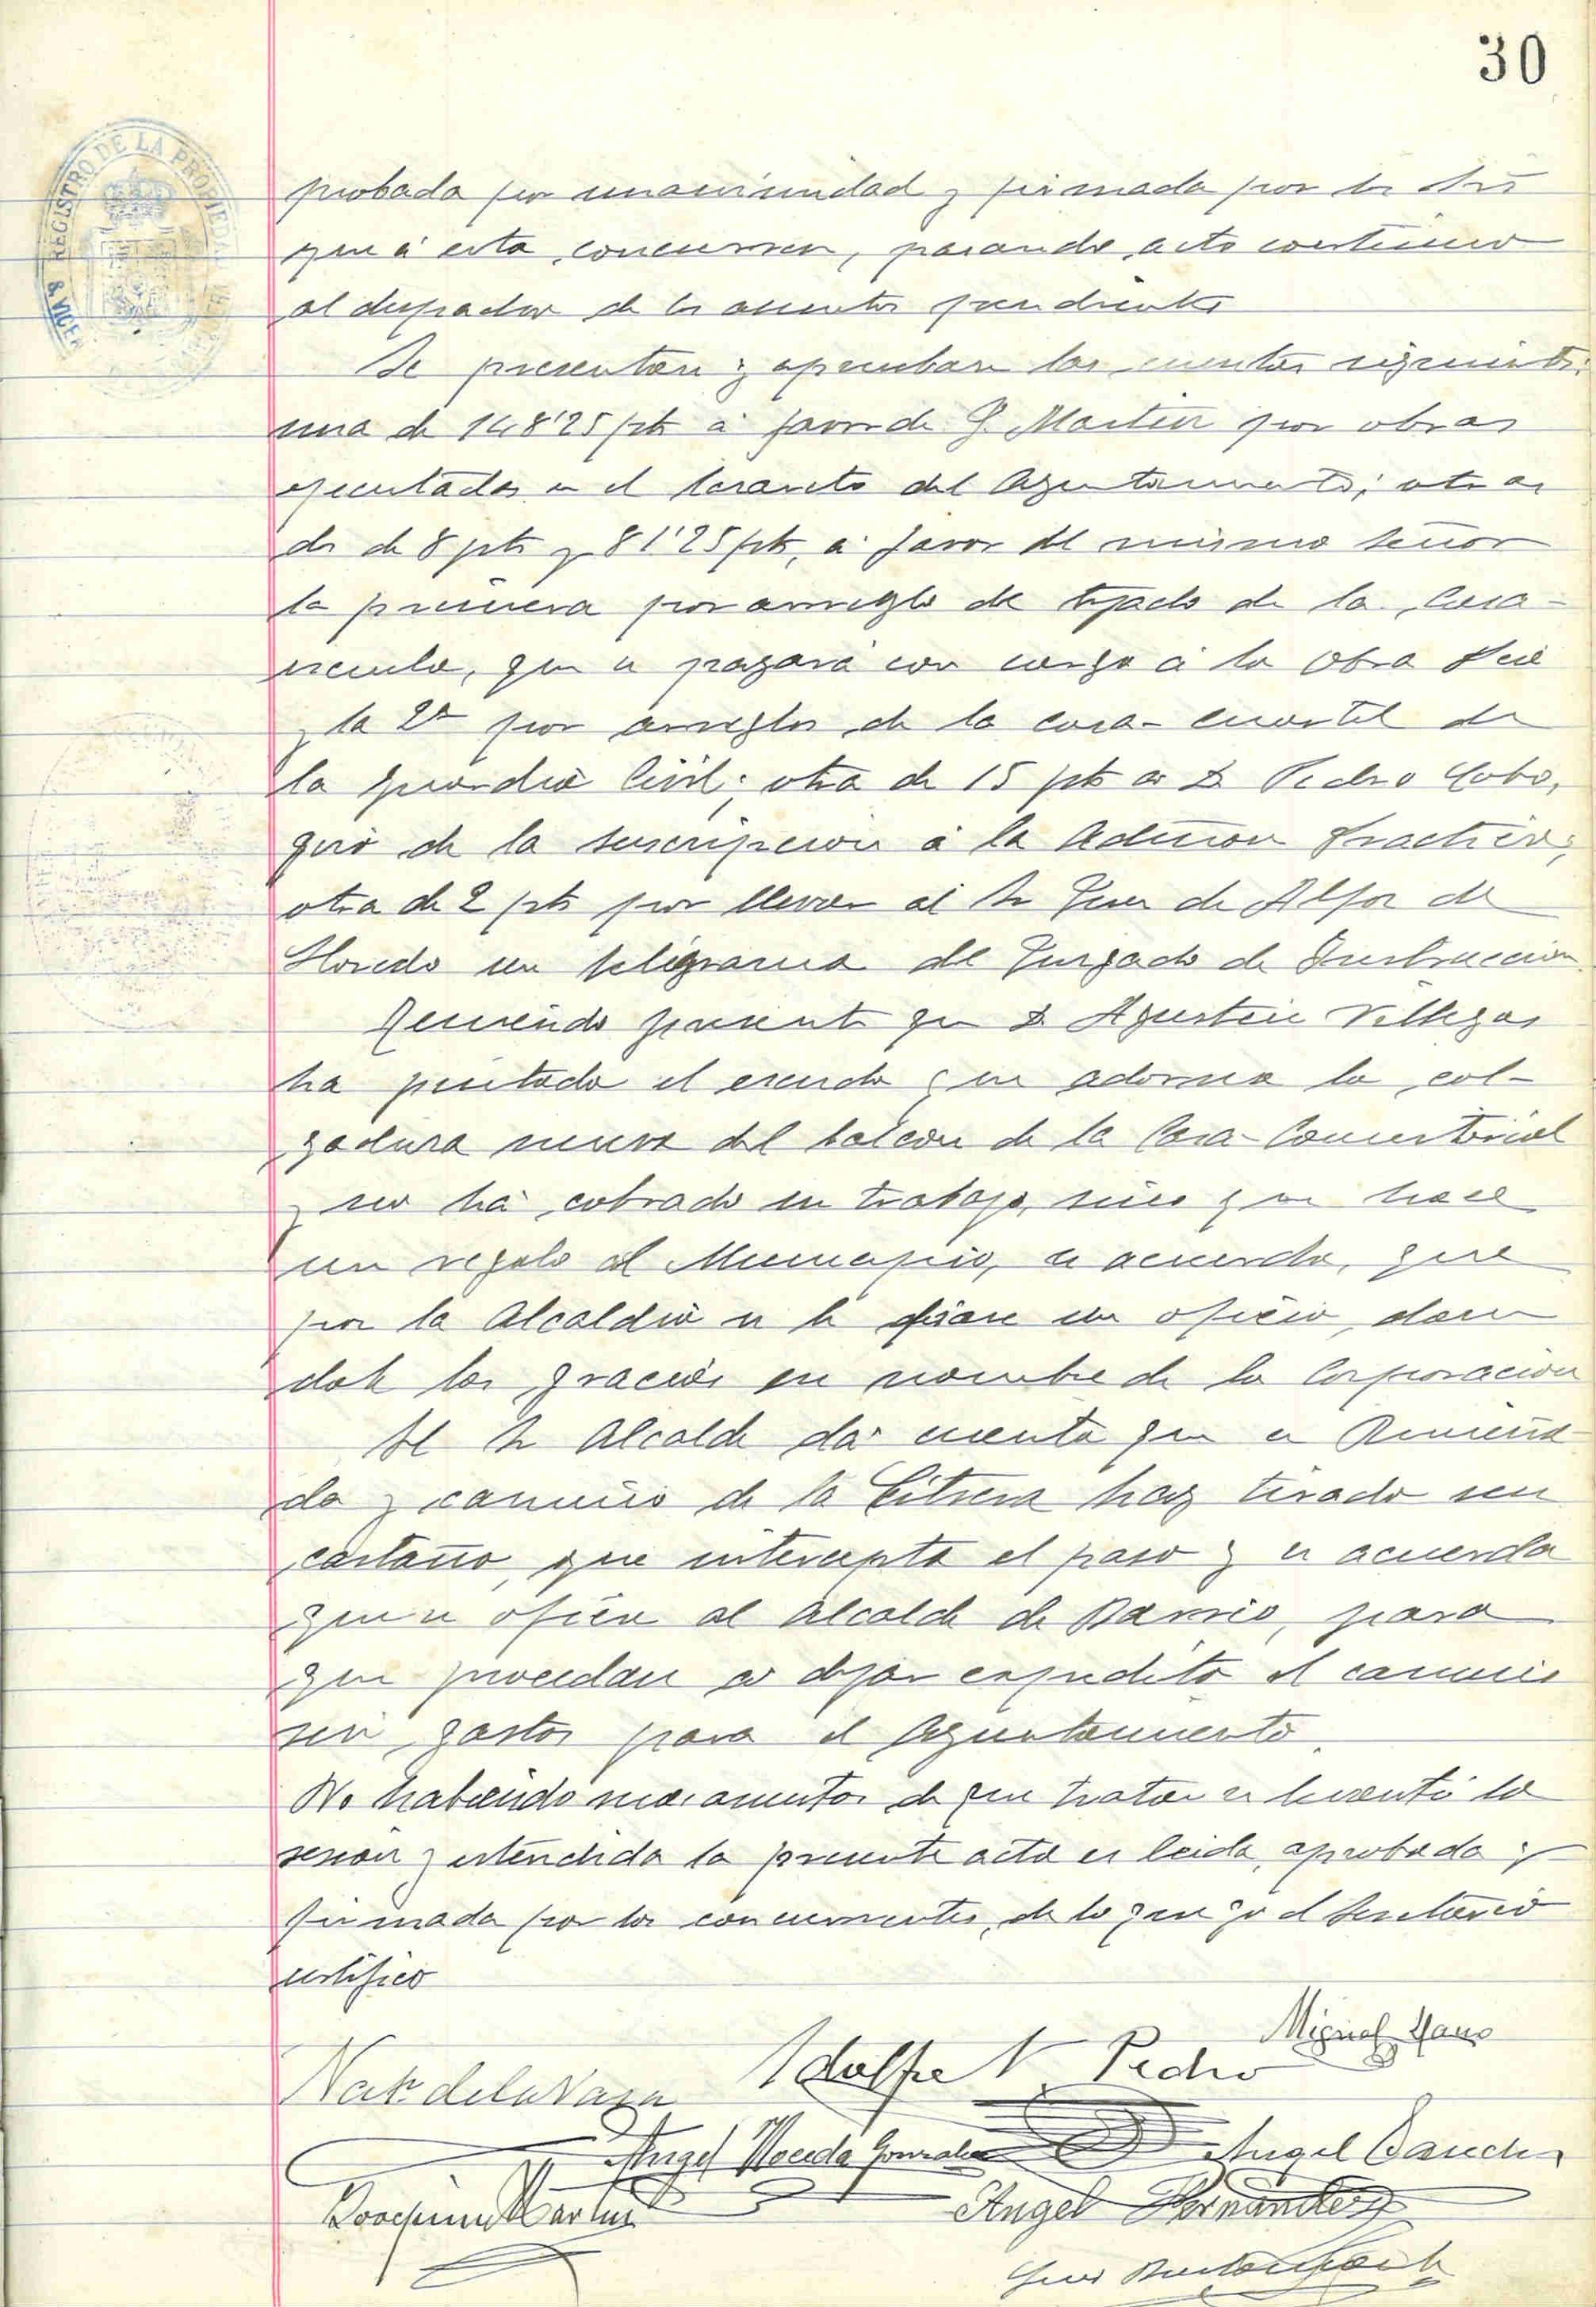 30
REGISTRO DE LA PROPIEDAD
S. VICEN
probada por unanimidad y firmada por los Srs
que á esta concurren, pasando acto continuo
al despacho de los asuntos pendientes
Se presentan y aprueban las cuentas siguientes:
una de 148'25 pts á favor de J. Martin por obras
ejecutadas en el lavaveto del Ayuntamiento; otras
dos de 8 pts y 81'25 pts, á favor del mismo señor
la primera por arreglo de tejado de la Casa-
escuela, que se pagará con cargo á la Obra Pia
y la 2ª por arreglos de la casa-cuartel de
la guardia Civil; otra de 15 pts a D Pedro Cobo,
giro de la suscripcion á la Admon Practica;
otra de 2 pts por llevar al Sr Juez de Alfoz de
Lloredo un telegrama del Juzgado de Instruccion
Teniendo presente que D. Agustin Villegas
ha pintado el escudo que adorna la col-
gadura nueva del balcon de la Casa-Consistorial
y no há cobrado su trabajo, sino que hace
un regalo al Municipio, se acuerda, que
por la Alcaldia se le pase un oficio, dan
dole las gracias en nombre de la Corporacion
El Sr Alcalde da cuenta que en
da y camino de la hay tirado un
castaño, que intercepta el paso y se acuerda
que se oficie al Alcalde de Barrio, para
que procedan a dejar expedito el camino
sin gastos para el Ayuntamiento.
No habiendo mas asuntos de que tratar se levantó la
sesion y estendida la presente acta es leida, aprobada y
firmada por los concurrentes, de lo que yo el Secretario
certifico
Miguel
Adolfo V. Pedro
Nat. de la Vara
Angel Noceda Gonzalez
Angel Sanchez
Joaquin Martin
Angel Fernandez